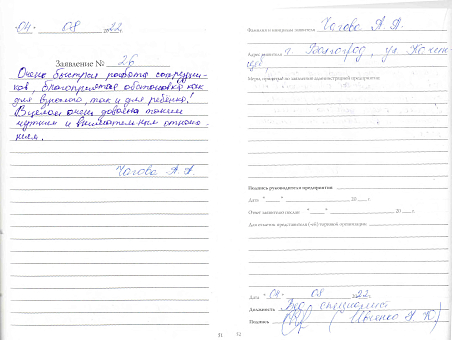 "04" 08 2022г.
Заявление № 26
Очень быстрая работа сотрудни-
ков, благоприятная обстановка как
для взрослого, так и для ребёнка!
В целом очень довольна таким
чутким и внимательным отноше-
нием.
Чогова А. А.
Фамилия и инициалы заявителя Чогова А. А.
Адрес заявителя г. Волгоград, ул.
Меры, принятые по заявлению администрацией предприятия
Подпись руководителя предприятия
Дата " " 20 г.
Ответ заявителю послан " " 20 г.
Для отметок представителя (-ей) торговой организации
Дата "04" 08 2022г.
Должность Вед. специалист
Подпись
31
32